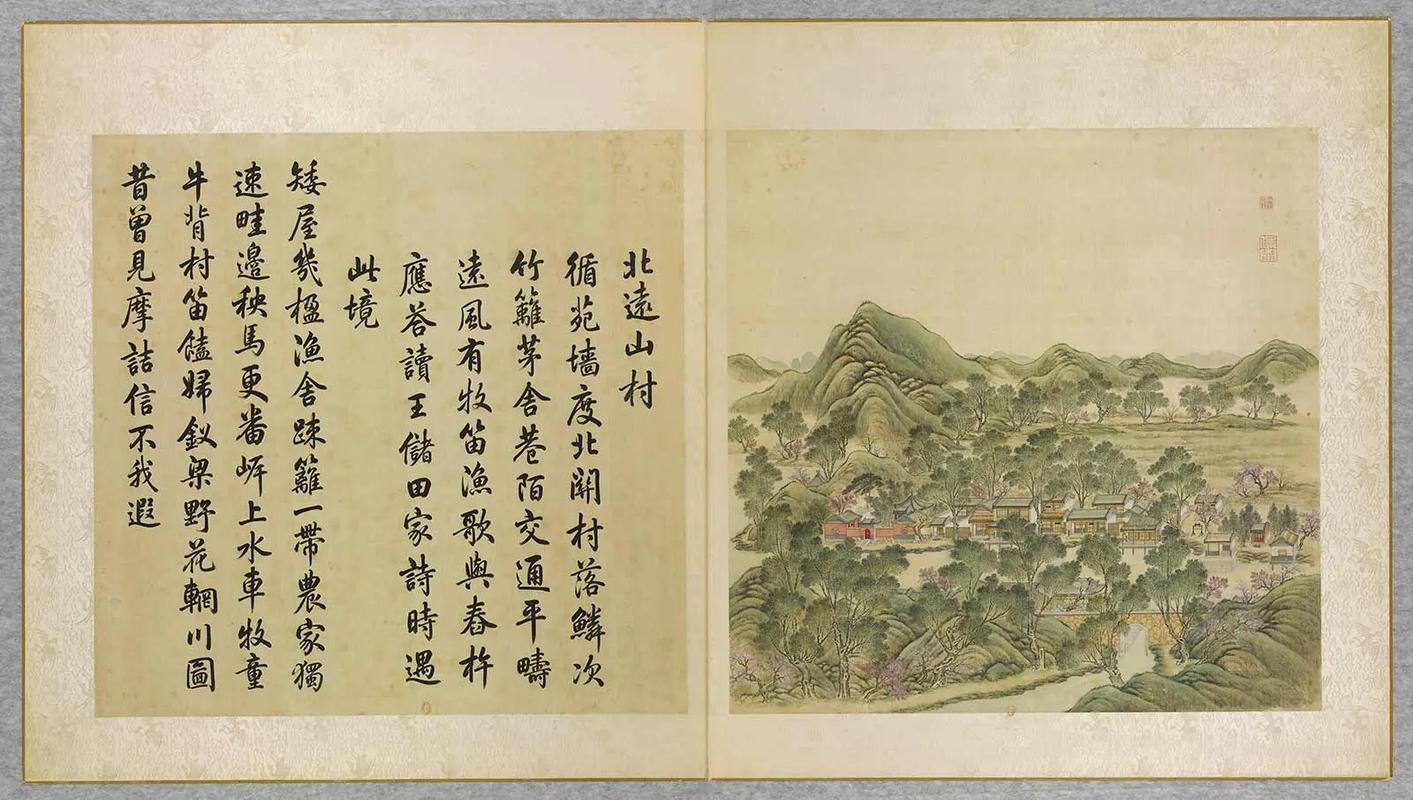 北遠山村
循苑墻度北關村落鱗次
竹籬茅舍巷陌交通平疇
遠風有牧笛漁歌與舂杵
應荅讀王儲田家詩時遇
此境
矮屋幾楹漁舍踈籬一帶農家獨
速畦邊秧馬更畨岸上水車牧童
牛背村笛饁婦釵梁野花輞川圖
昔曾見摩詰信不我遐